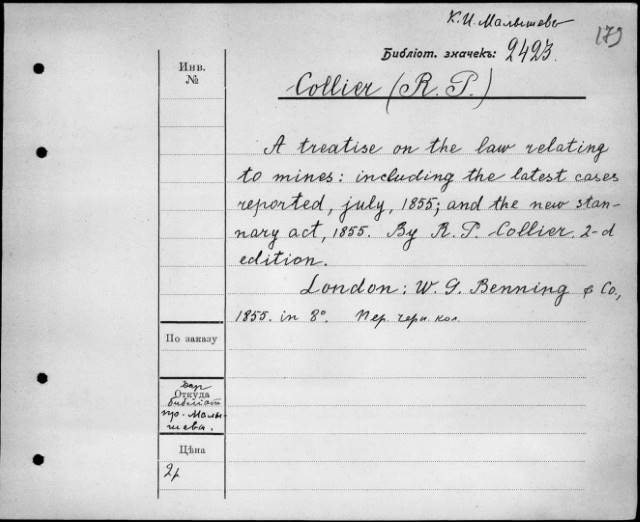 К. И. Малышевъ
179
Библіот. значекъ: 2423.
Collier (R. P.)
Инв.
№
A treatise on the law relating
to mines: including the latest cases
reported, july, 1855; and the new stan-
nary act, 1855. By R. P. Collier. 2-d
edition.
London: W. G. Benning & Co,
1855. in 8°. Пер. черн. кол.
По заказу
Дар
Откуда
библіот
пр. Малы-
шева.
Цѣна
2р